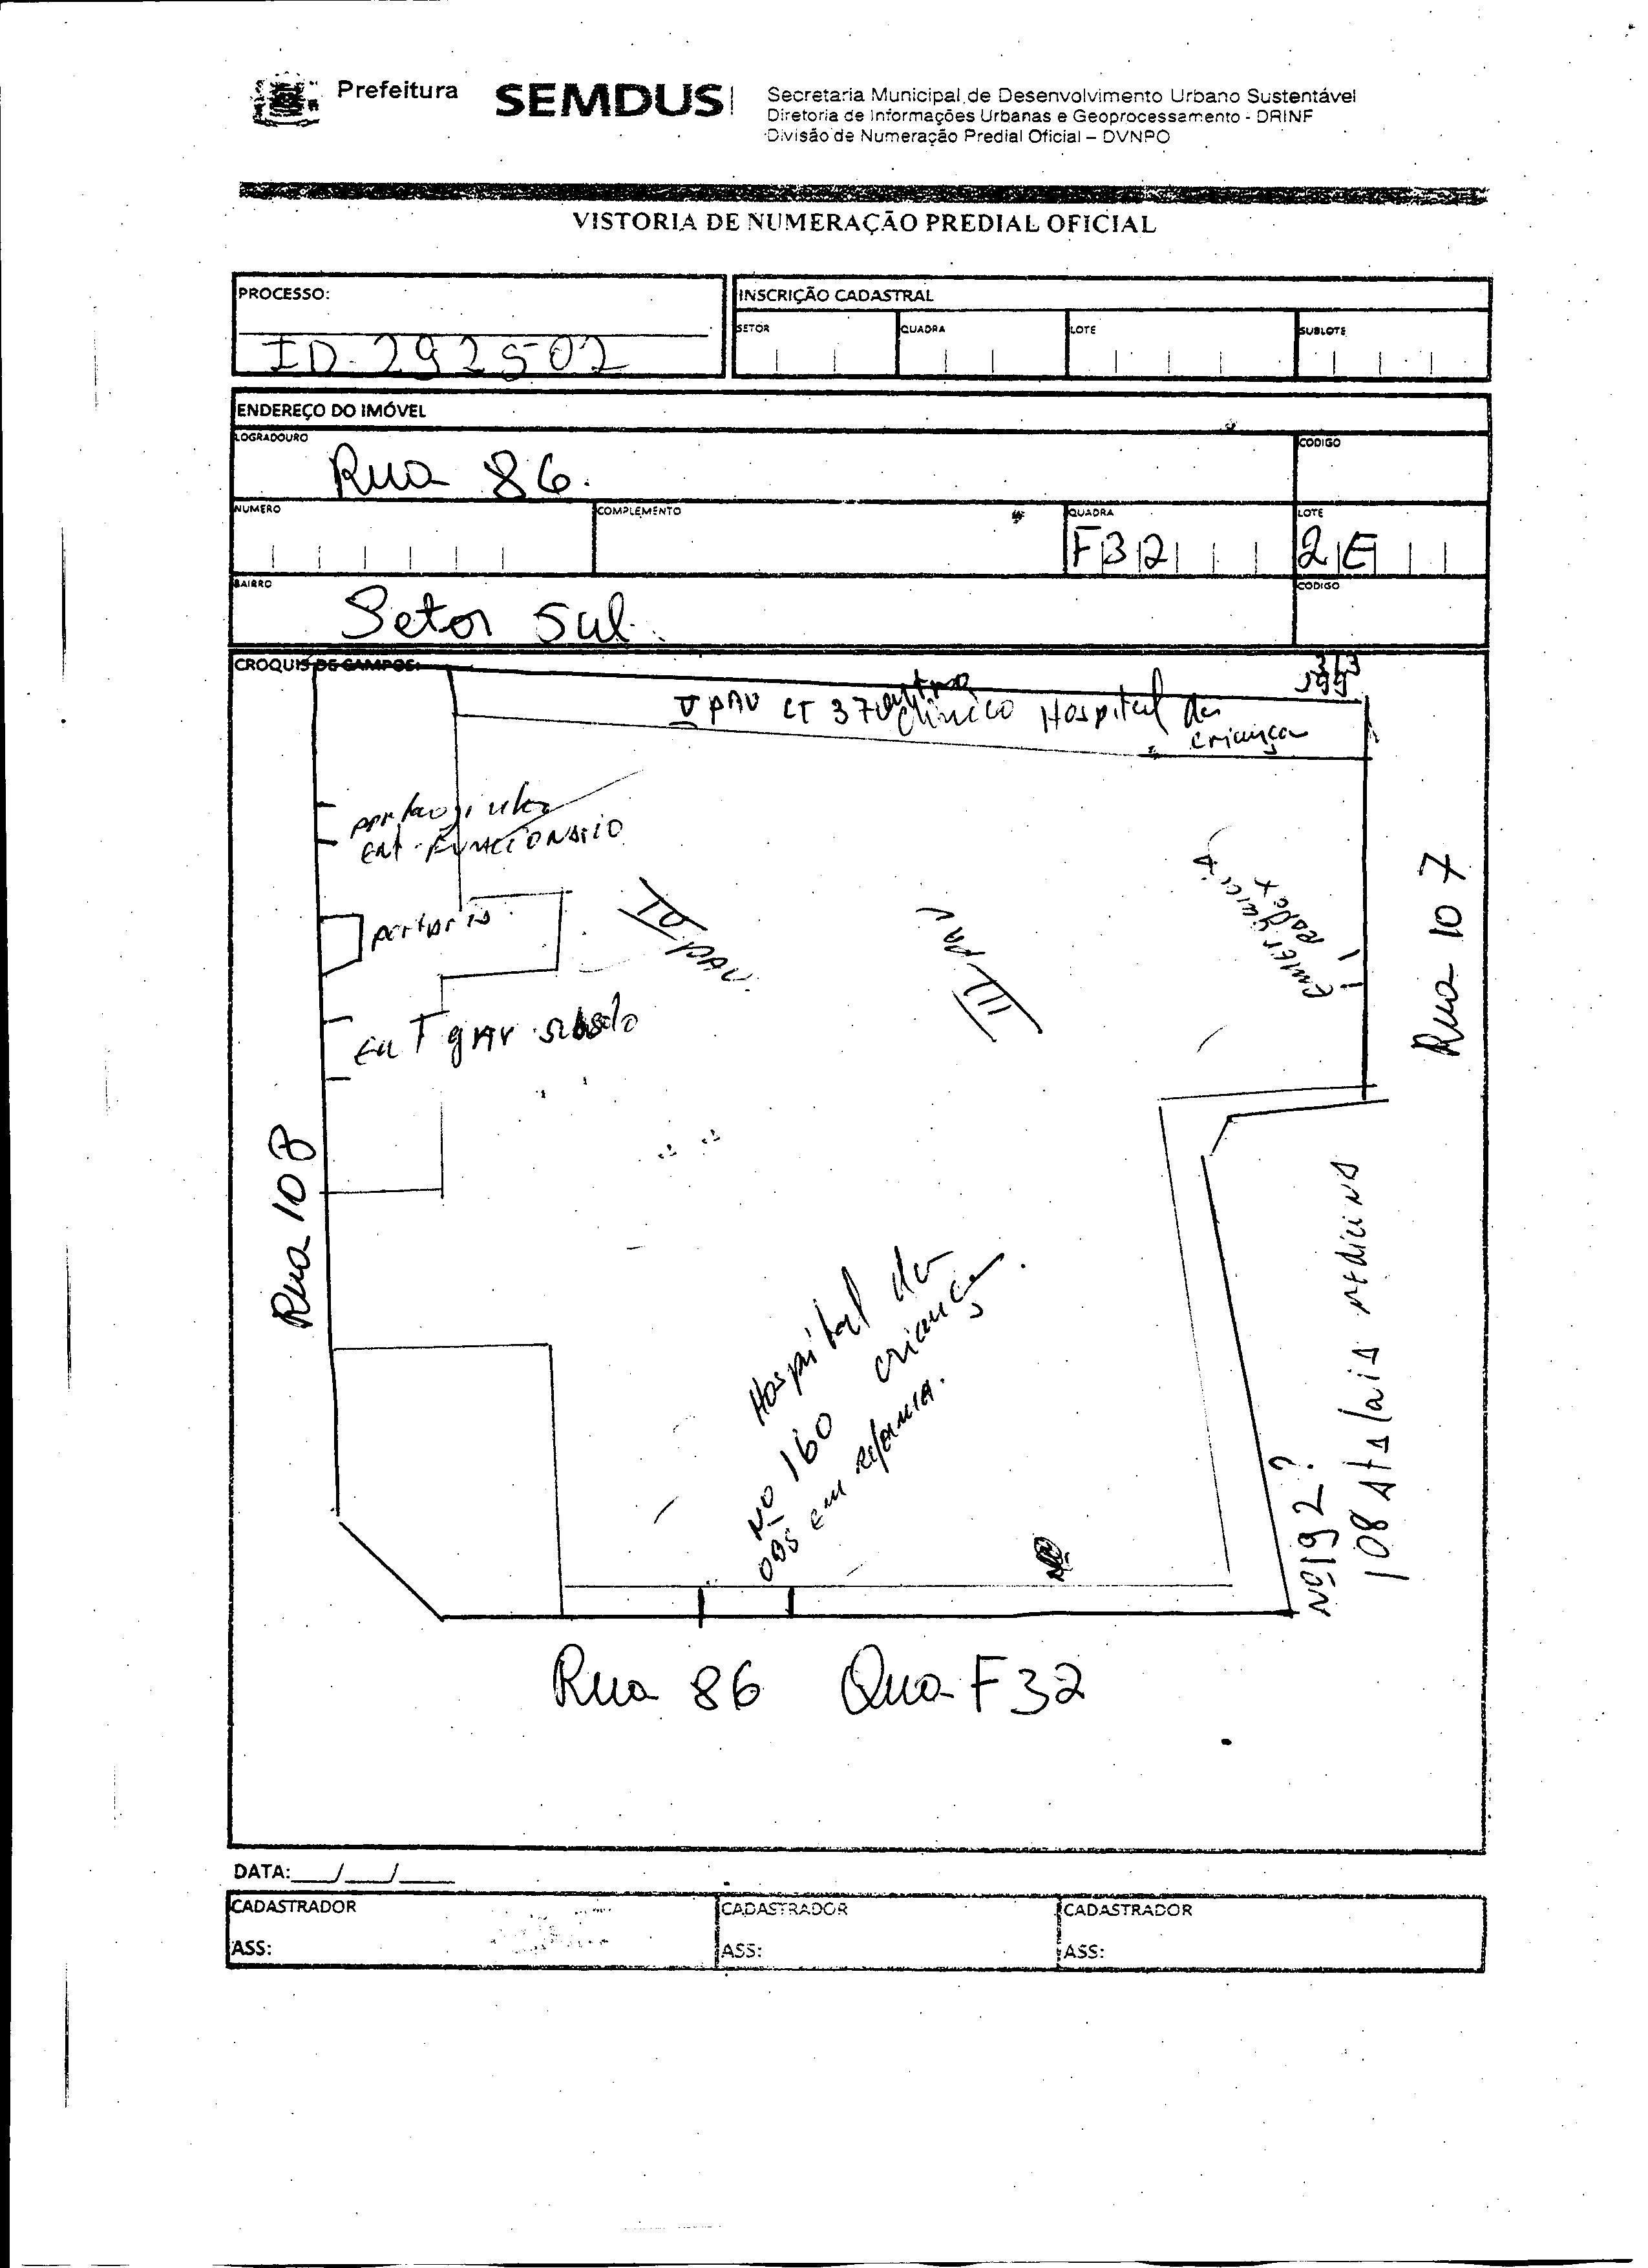 Prefeitura
SEMDUS
Secretaria Municipal de Desenvolvimento Urbano Sustentável
Diretoria de Informações Urbanas e Geoprocessamento - DRINF
Divisão de Numeração Predial Oficial – DVNPO
VISTORIA DE NUMERAÇÃO PREDIAL OFICIAL
PROCESSO:
ID-292502
INSCRIÇÃO CADASTRAL
SETOR
QUADRA
LOTE
SUBLOTE
ENDEREÇO DO IMÓVEL
LOGRADOURO
Rua 86.
CODIGO
NUMERO
COMPLEMENTO
QUADRA
F32
LOTE
2E
BAIRRO
Setor Sul.
CODIGO
CROQUIS DE CAMPOS:
V PAV LT 37 Clinico Hospital da
criança
ENT. FUNCIONARIO
portaria
II PAV.
III PAV
Emergência
Rua 107
Rua 108
Hospital da
criança
Nº 160
OBS em reforma.
Nº 192?
108 Atalaia medicina
Rua 86 Qua F32
DATA:___/___/____
CADASTRADOR
ASS:
CADASTRADOR
ASS:
CADASTRADOR
ASS: